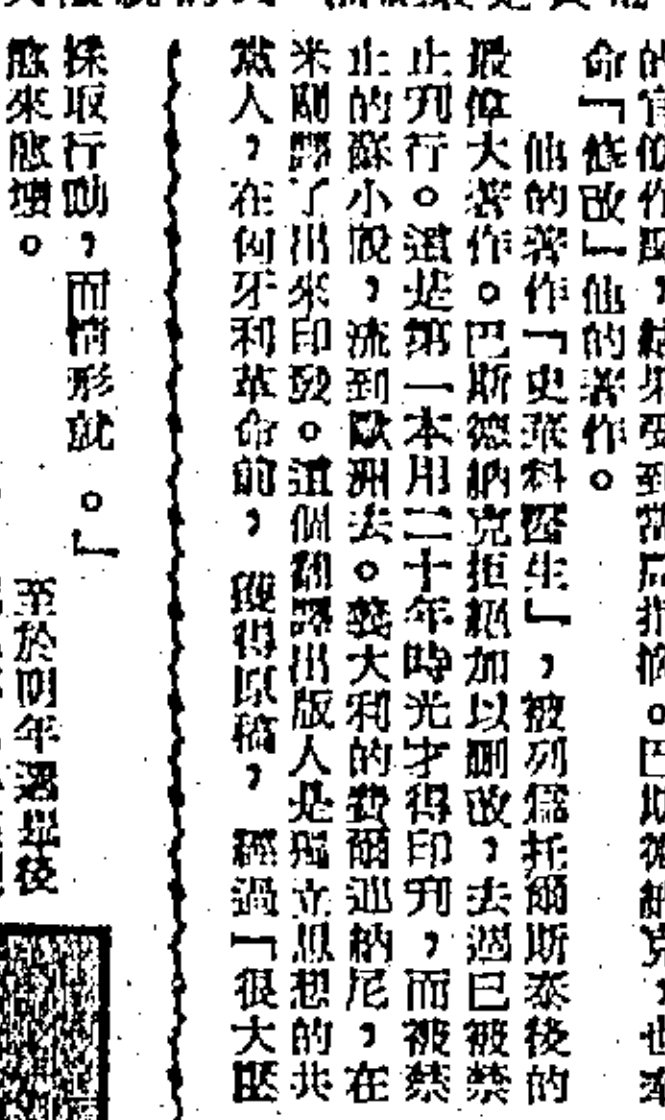 的官僚作風，結果受到當局指摘。巴斯德納克，也奉
命「修改」他的著作。
他的著作「史萊科醫生」，被列為托爾斯泰後的
最偉大著作。巴斯德納克拒絕加以刪改，去週已被禁
止刊行。這是第一本用二十年時光才得印刊，而被禁
止的蘇小說，流到歐洲去。義大利的費爾迪納尼，在
米蘭譯了出來印發。這個翻譯出版人是獨立思想的共
黨人，在匈牙利革命前，獲得原稿，經過「很大壓
採取行動，而情形就
愈來愈壞。
。」
至於明年選舉後